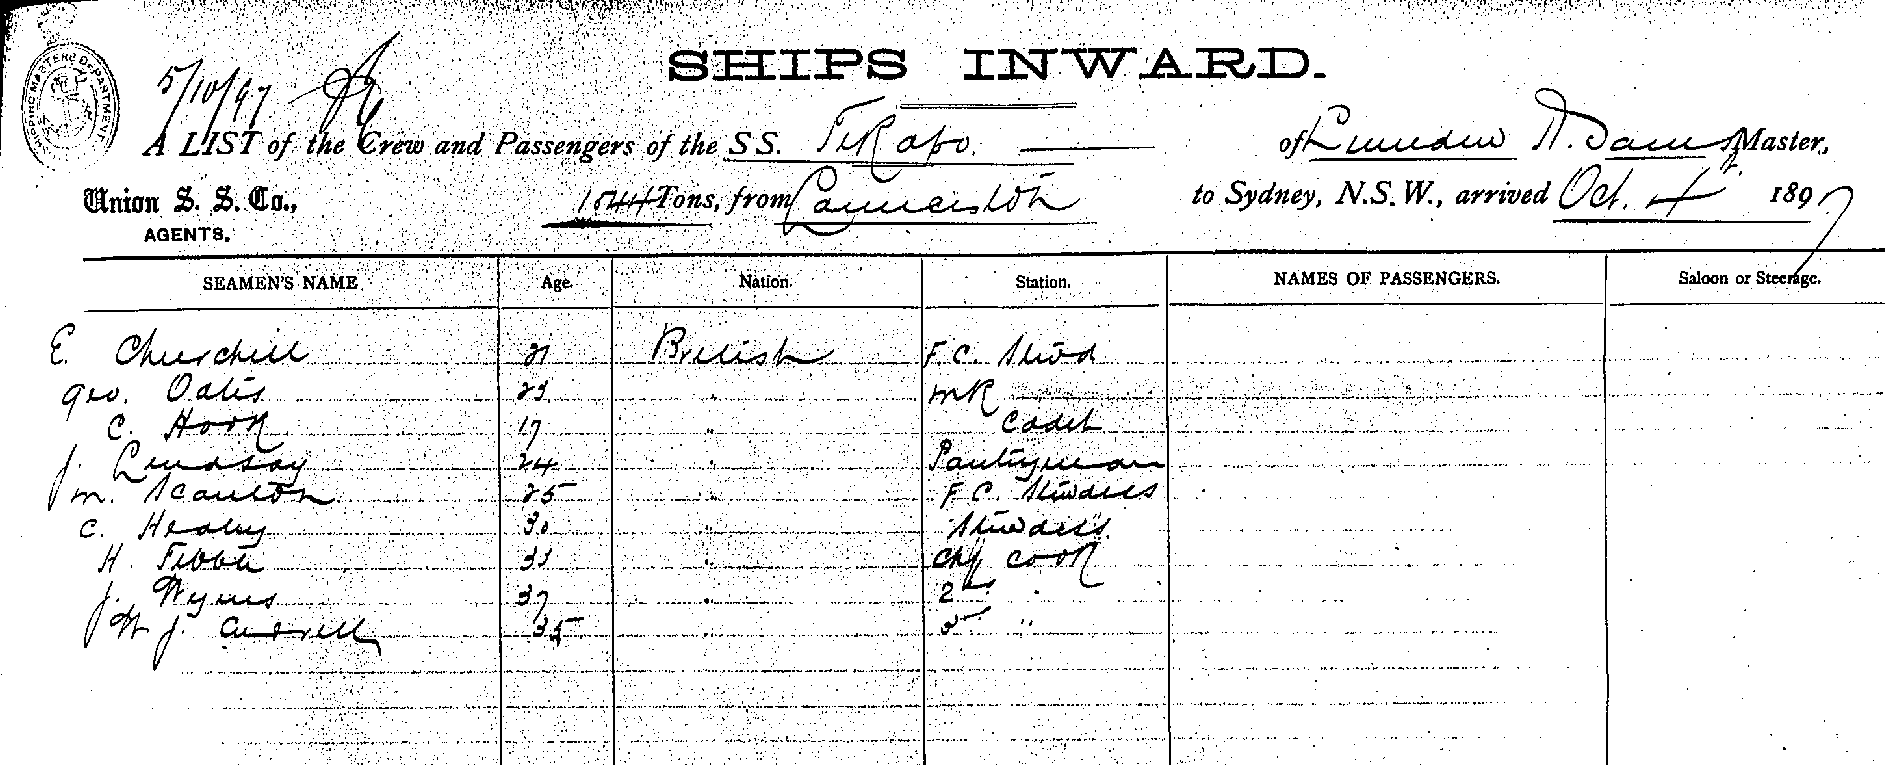 SHIPPING MASTER'S DEPARTMENT
5/10/97
SHIPS INWARD.
A LIST of the Crew and Passengers of the SS. TeKapo. of Dunedin Master,
Union S. S. Co., 1544 Tons, from Launceston to Sydney, N.S.W., arrived Oct. 4 1897
AGENTS.
SEAMEN'S NAME Age. Nation. Station. NAMES OF PASSENGERS. Saloon or Steerage.
E. Churchill 21 British F.C. Stwd
Geo. Oates 23 " MR
C. Hook 17 " Cadet
J. Lindsay 24 " Pantryman
M. Scanlon 25 " F.C. Stwdess
C. Healey 30 " Stwdess
H. Tebbu 33 " Chf Cook
J. Wynes 37 " 2nd "
W. J. 35 " 3rd "